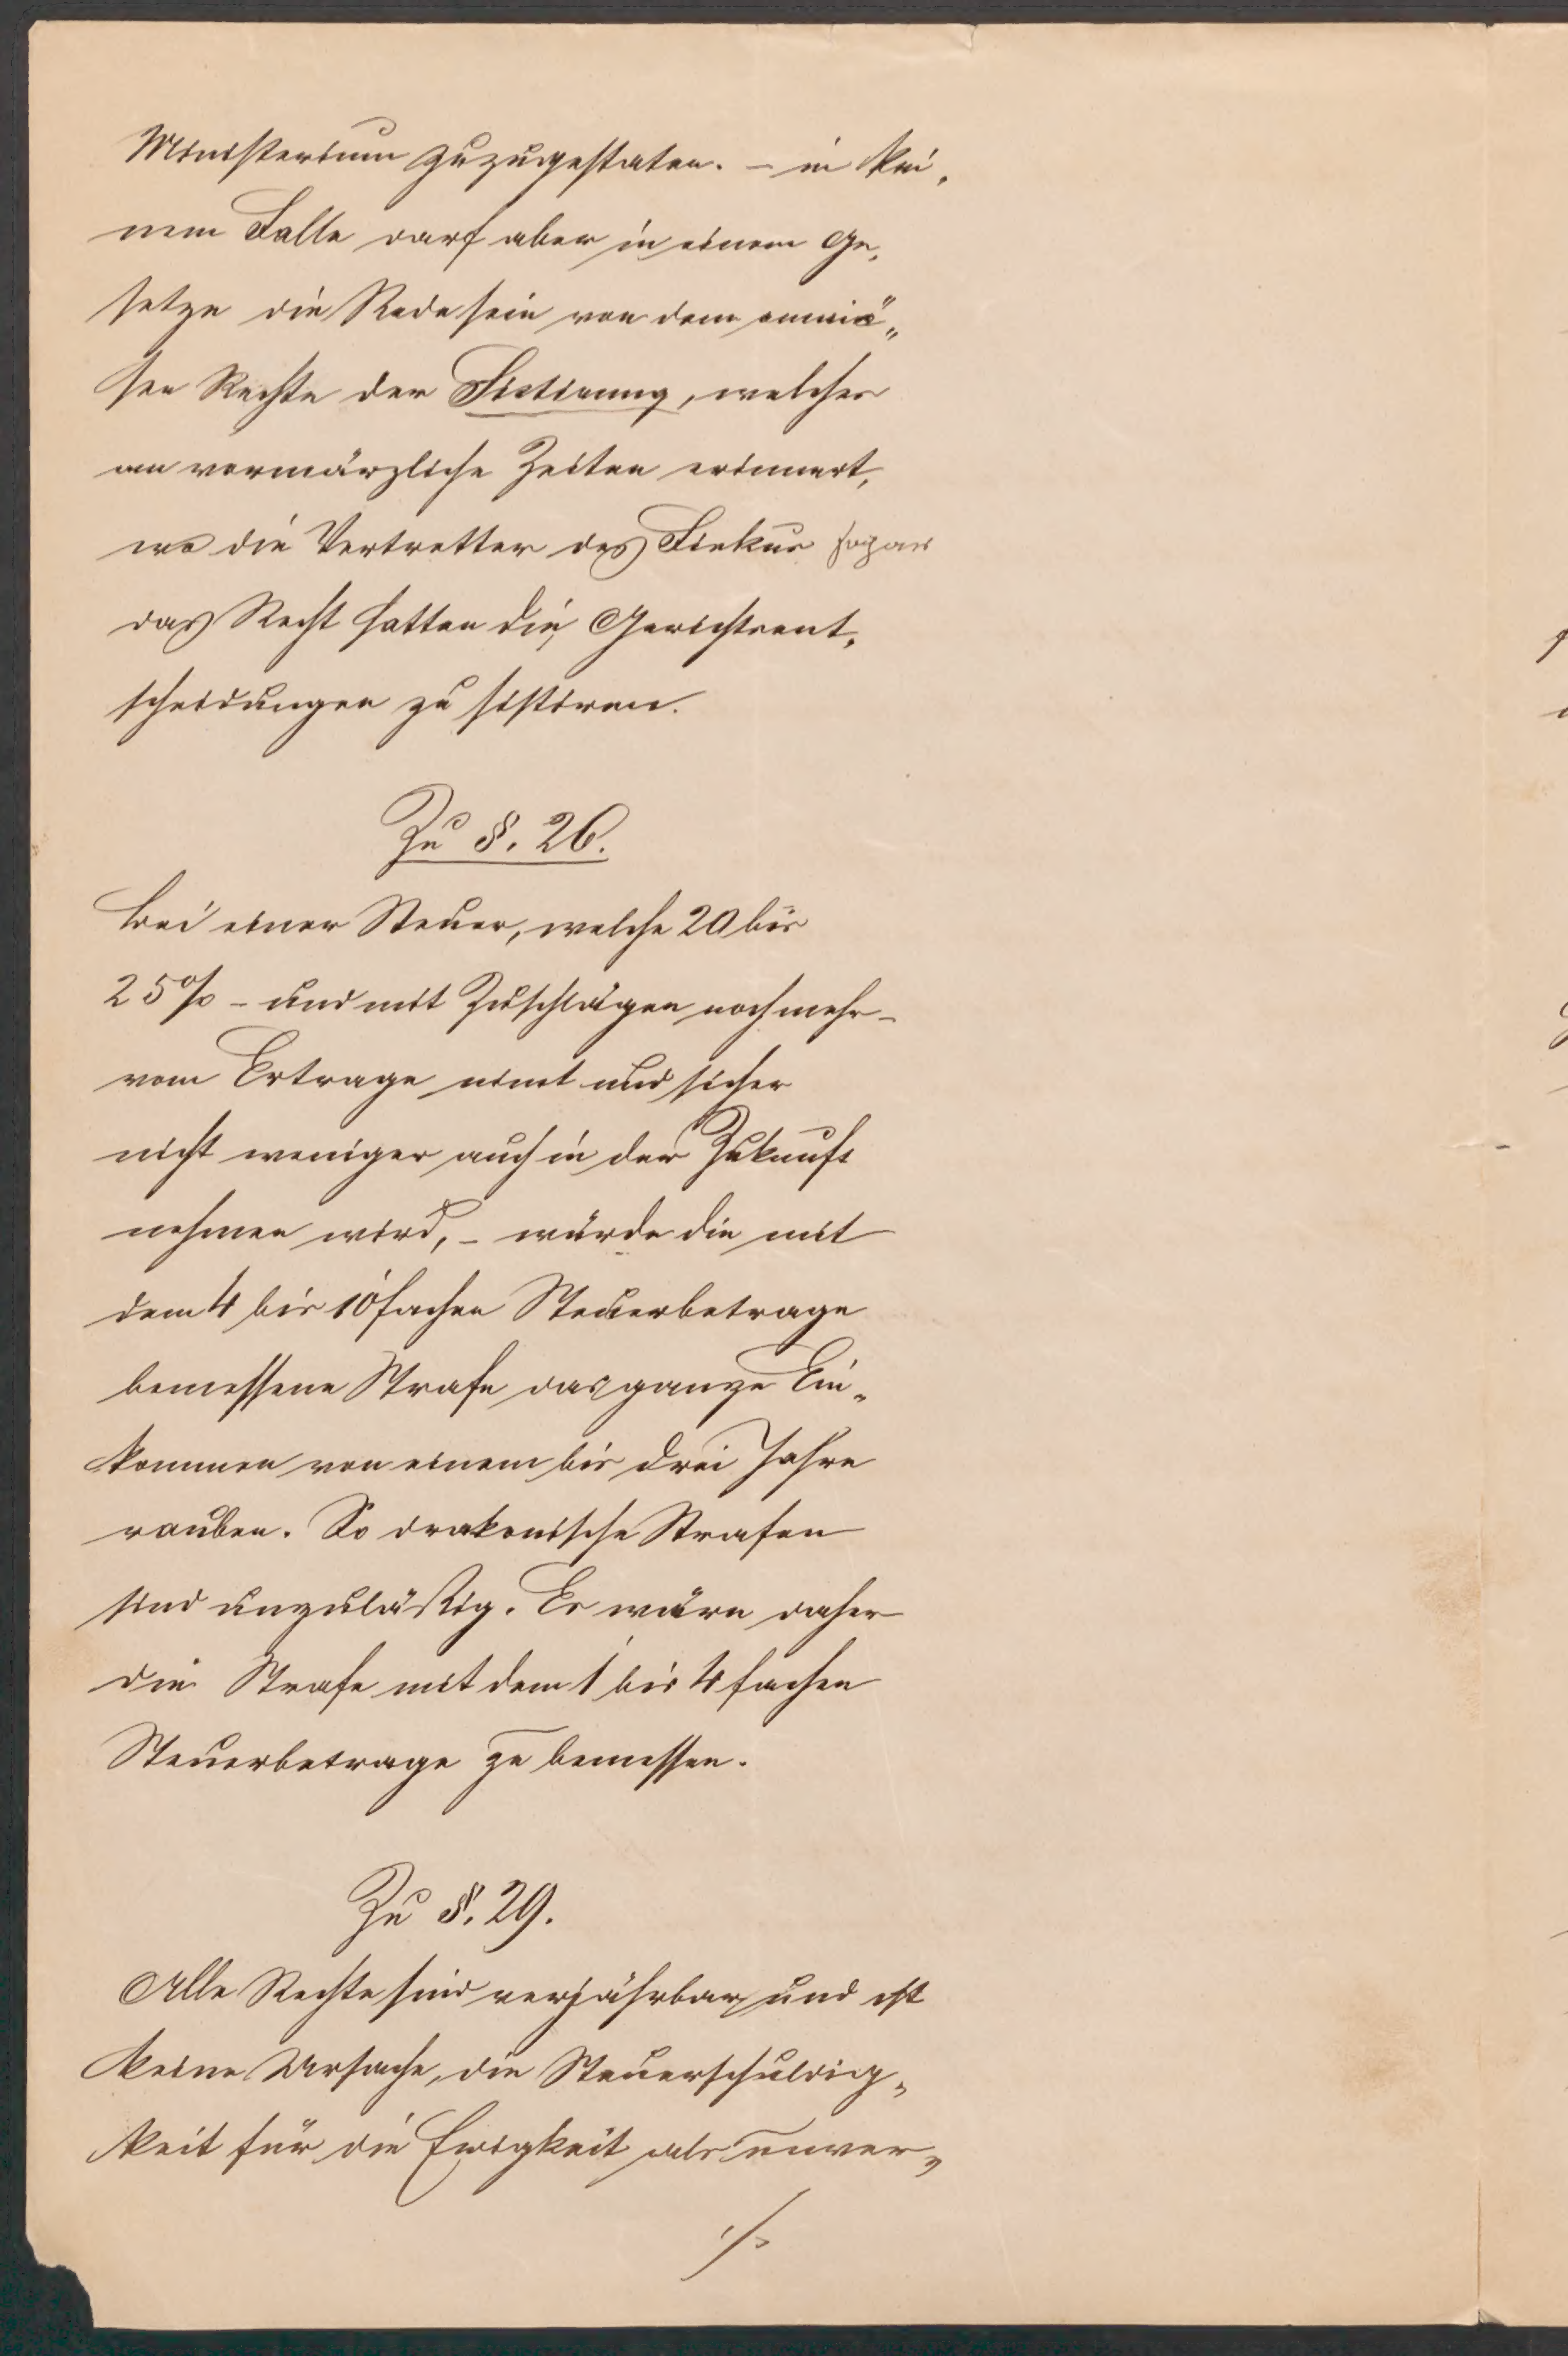 Ministerium zuzugestaten. – in kei„
nem Falle darf aber in einem Ge„
setze die Rede sein von dem ominö„
sen Rechte der Sistirung, welches
an vormärzliche Zeiten erinnert,
wo die Vertretter des Fiskus sogar
das Recht hatten die Gerichtsent„
scheidungen zu sistiren.
Zu §. 26.
Bei einer Steuer, welche 20 bis
25% – und mit Zuschlägen noch mehr –
vom Ertrage nimt und sicher
nicht weniger auch in der Zukunft
nehmen wird, – würde die mit
dem 4 bis 10 fachen Steuerbetrage
bemessene Strafe das ganze Ein„
kommen von einem bis drei Jahre
rauben. So drakonische Strafen
sind unzuläßig. Es wäre daher
die Strafe mit dem 1 bis 4 fachen
Steuerbetrage zu bemessen.
Zu §. 29.
Alle Rechte sind verjährbar und ist
keine Ursache, die Steuerschuldig„
keit für die Ewigkeit als unver„
./.